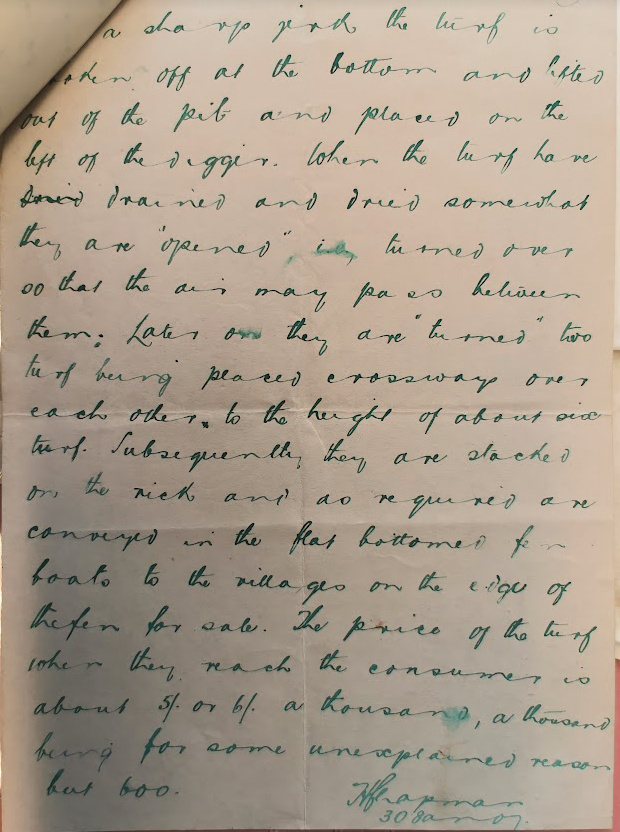 a sharp jerk the turf is
broken off at the bottom and lifted
out of the pit and placed on the
left of the digger. When the turf have
drained and dried somewhat
they are "opened" i.e., turned over
so that the air may pass between
them. Later on they are "turned" two
turf being placed crossways over
each other, to the height of about six
turf. Subsequently they are stacked
on the rick and as required are
conveyed in the flat bottomed fen
boats to the villages on the edge of
the fen for sale. The price of the turf
when they reach the consumer is
about 5/. or 6/. a thousand, a thousand
being for some unexplained reason
but 600.
Chapman
30 Jan 07.